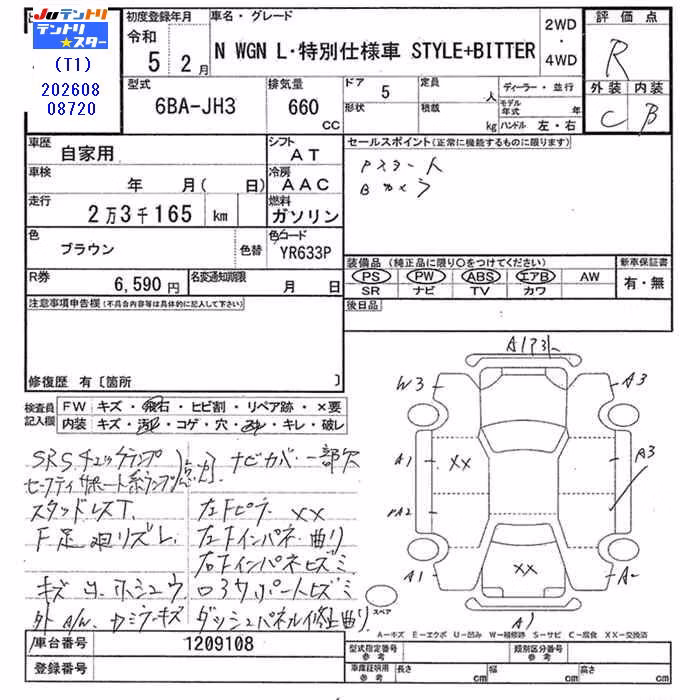 Juテントリ
テントリ
★スター
(T1)
202608
08720
初度登録年月
令和
5 2月
車名・グレード
N WGN L・特別仕様車 STYLE+BITTER
2WD
・
4WD
評価点
R
外装 内装
C B
型式
6BA-JH3
排気量
660
cc
ドア 5
形状
定員 人
積載 kg
ディーラー・並行
モデル年式 年
ハンドル 左・右
車歴 自家用
シフト AT
車検 年 月( 日)
冷房 AAC
走行 2万3千165 km
燃料 ガソリン
色 ブラウン 色替
色コード YR633P
R券 6,590円
名変通知期限 月 日
セールスポイント(正常に機能するものに限ります)
Pスタート
Bカメラ
装備品(純正品に限り○をつけてください)
PS PW ABS エアB AW
SR ナビ TV カワ
新車保証書
有・無
後日品
注意事項申告欄(不具合内容等は具体的に記入して下さい)
修復歴 有〔箇所 〕
検査員記入欄
FW キズ・飛石・ヒビ割・リペア跡・×要
内装 キズ・汚れ・コゲ・穴・・キレ・破レ
SRSチェックランプ
セーフティサポート系ランプ
点灯
ナビカバー一部欠
スタッドレスT.
左Fピラー ××
F足廻リズレ.
左Fインパネ曲り
右Fインパネヒズミ
キズ サ
コアサポートヒズミ
外 A/W. カミラーキズ
ダッシュパネル修正曲り
W3
A3
A1
××
A3
A2
A1
××
A
A1
スペア
A−キズ E−エクボ U−凹み W−補修跡 S−サビ C−腐食 XX−交換済
車台番号 1209108
登録番号
型式指定番号 参考
類別区分番号 参考
車庫証明用 参考
長さ cm
幅 cm
高さ cm